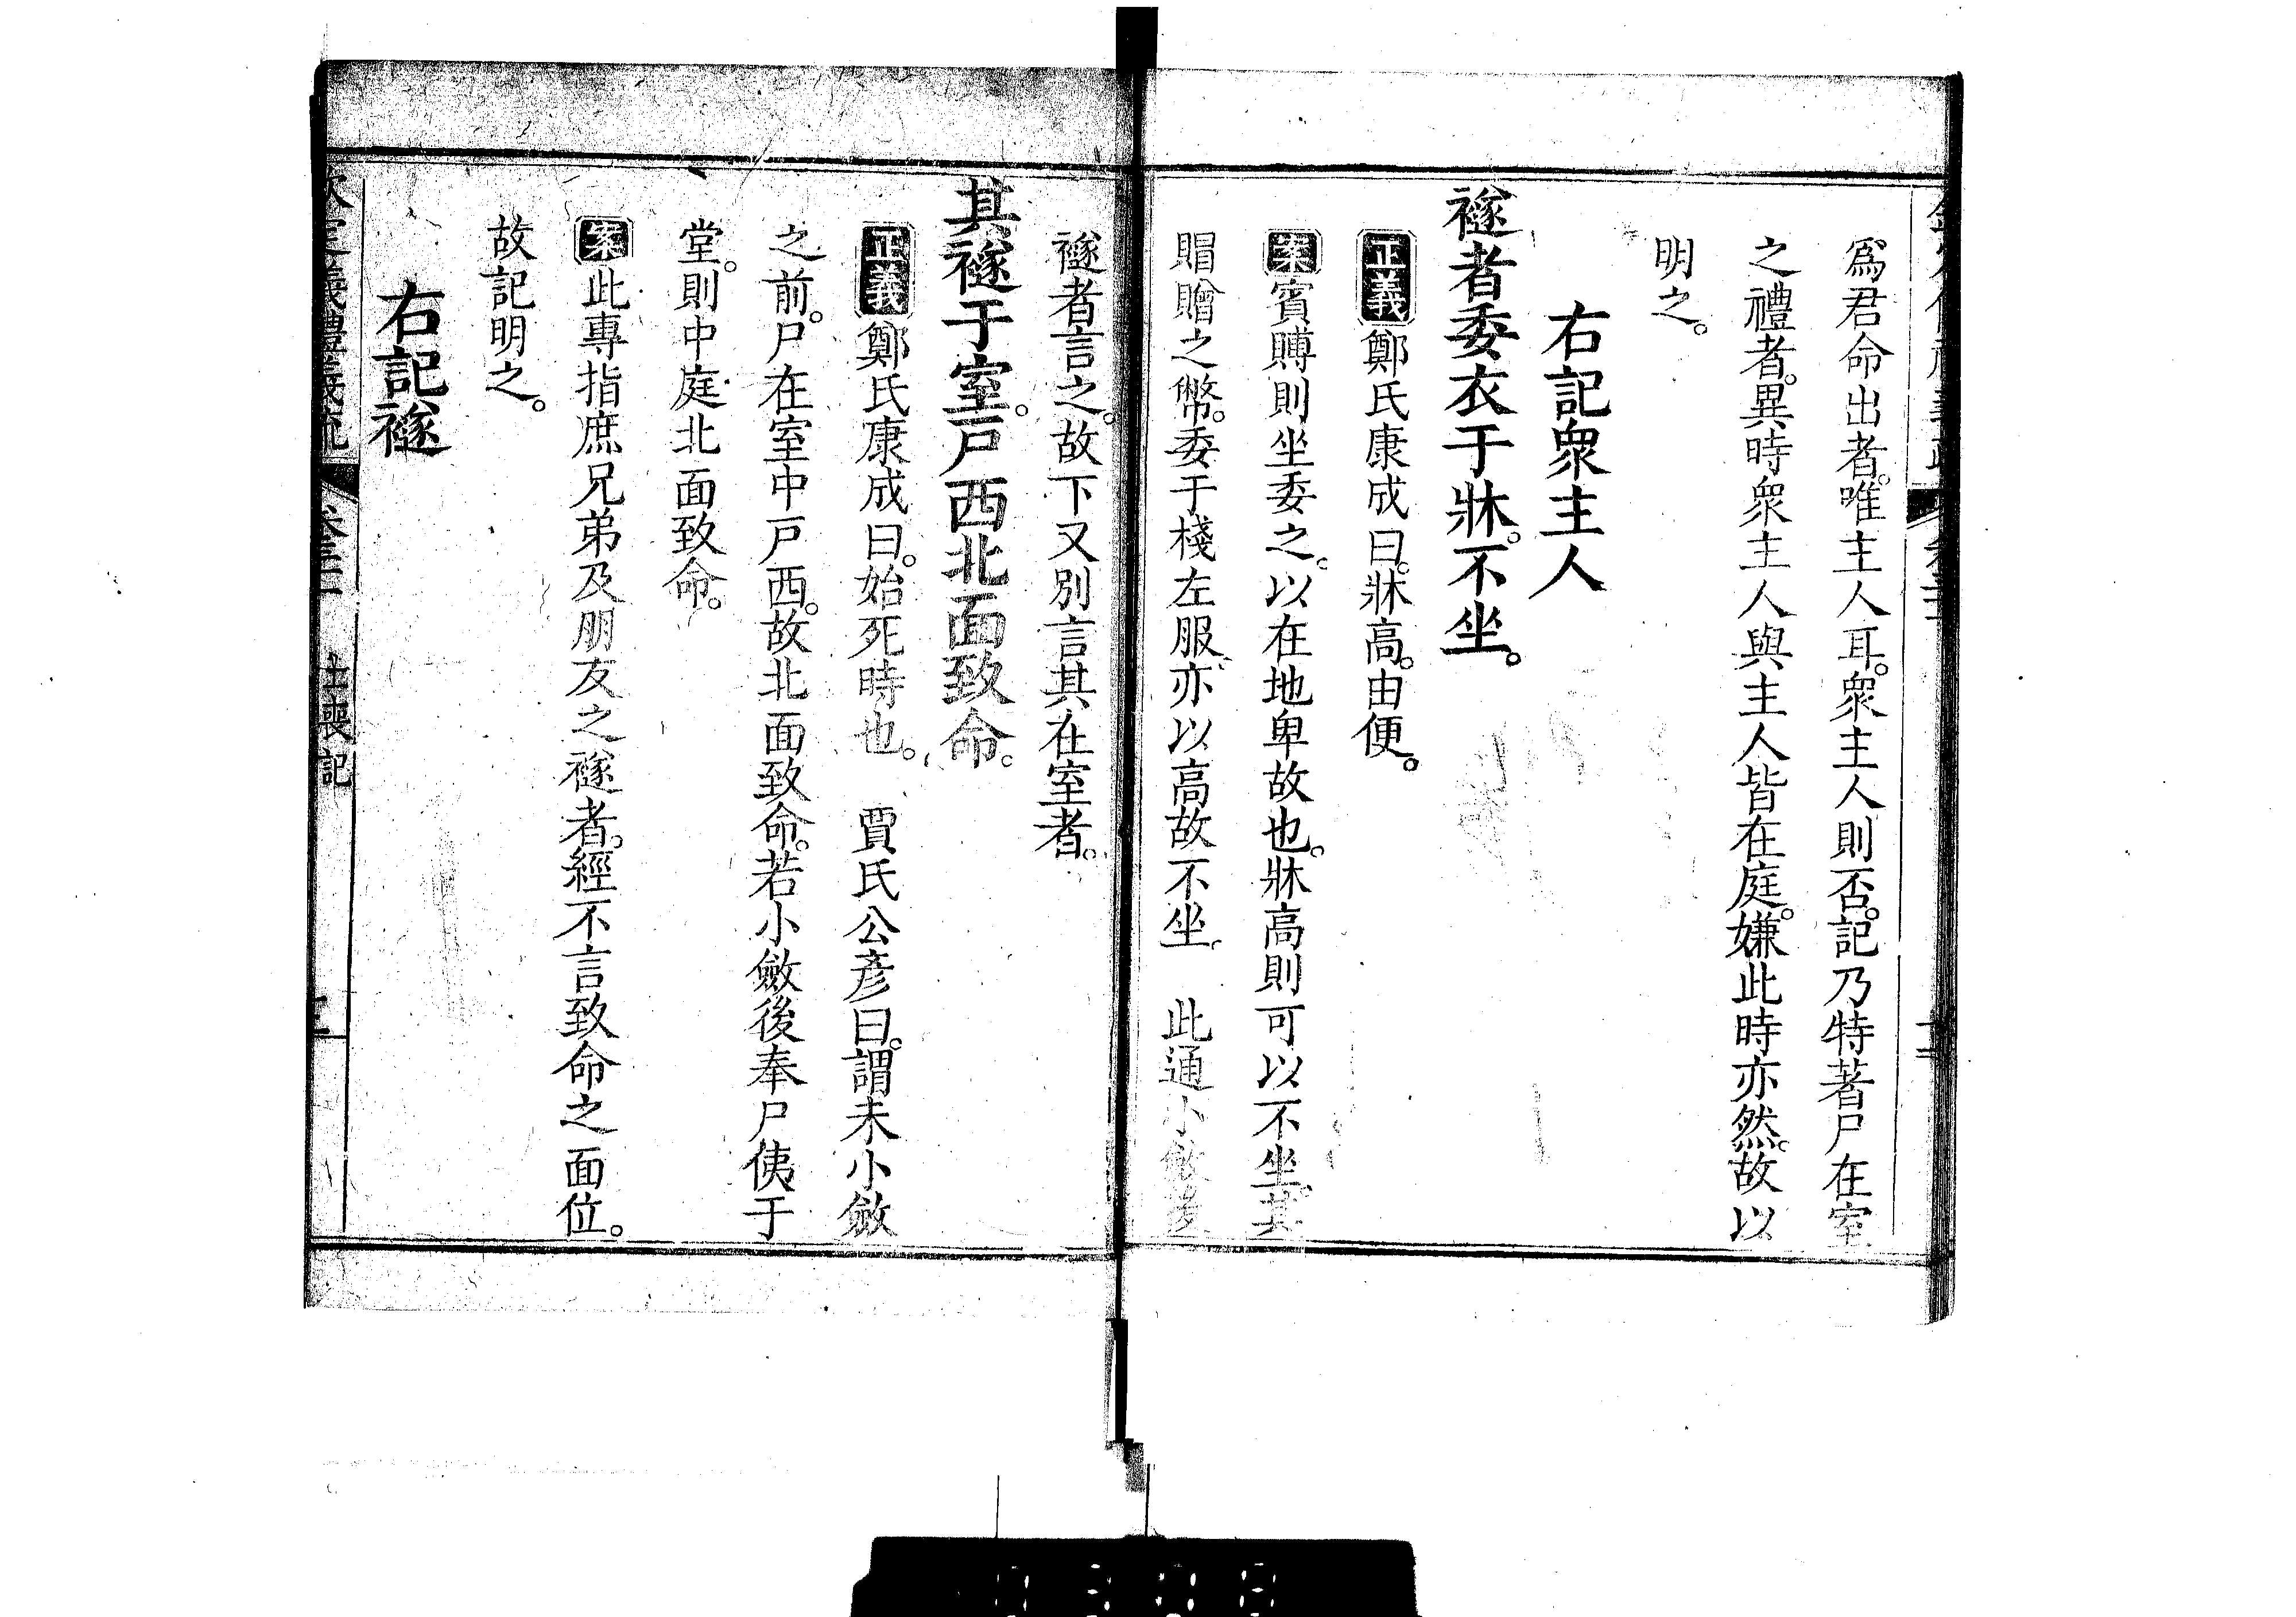 爲君命出者。唯主人耳。衆主人則否。記乃特著尸在室
之禮者。異時衆主人與主人皆在庭。嫌此時亦然。故以
明之。
右記衆主人
襚者委衣于牀。不坐。
正義鄭氏康成曰。牀高。由便。
案賓賻則坐委之。以在地卑故也。牀高則可以不坐。其
賵贈之幣。委于棧左服、亦以高故不坐。 此通小斂後
襚者言之。故下又別言其在室者。
其襚于室。戸西北面致命。
正義鄭氏康成曰。始死時也。 賈氏公彥曰。謂未小斂
之前。尸在室中戸西。故北面致命。若小斂後奉尸侇于
堂。則中庭北面致命。
案此專指庶兄弟及朋友之襚者。經不言致命之面位。
故記明之。
右記襚
欽定儀禮義疏 士喪記